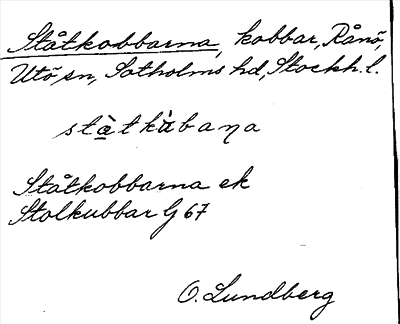 Ståtkobbarna, kobbar, Rånö,
Utö sn, Sotholms hd, Stockh. l.
stàtkùbaṇa
Ståtkobbarna ek
Stolkubbar G 67
O. Lundberg